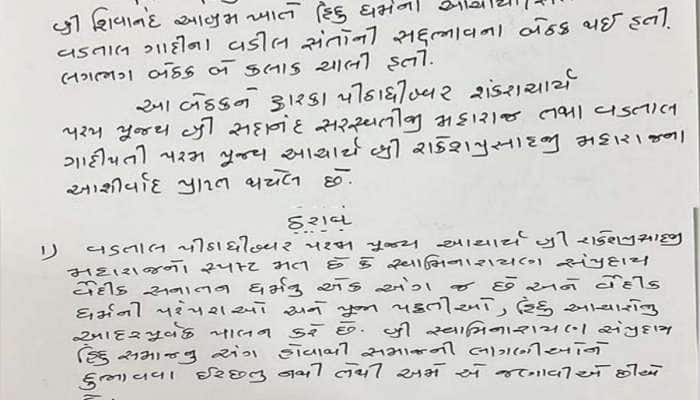 શ્રી શિવાનંદ આશ્રમ ખાતે હિંદુ ધર્મના આચાર્યો
વડતાલ ગાદીના વડીલ સંતોની સદ્દભાવના બેઠક થઈ હતી.
લગભગ બેઠક બે કલાક ચાલી હતી.
આ બેઠકને દ્વારકા પીઠાધીશ્વર શંકરાચાર્ય
પરમ પૂજ્ય શ્રી સદાનંદ સરસ્વતીજી મહારાજ તથા વડતાલ
ગાદીપતી પરમ પૂજ્ય આચાર્ય શ્રી રાકેશપ્રસાદજી મહારાજના
આશીર્વાદ પ્રાપ્ત થયેલ છે.
ઠરાવ
૧) વડતાલ પીઠાધીશ્વર પરમ પૂજ્ય આચાર્ય શ્રી રાકેશપ્રસાદજી
મહારાજનો સ્પષ્ટ મત છે કે સ્વામિનારાયણ સંપ્રદાય
વૈદીક સનાતન ધર્મનુ એક અંગ જ છે અને વૈદીક
ધર્મની પરંપરાઓ અને પૂજા પધ્ધતીઓ, હિંદુ આચારોનુ
આદરપૂર્વક પાલન કરે છે. શ્રી સ્વામિનારાયણ સંપ્રદાય
હિંદુ સમાજનુ અંગ હોવાથી સમાજની લાગણીઓને
દુભાવવા ઈચ્છતુ નથી તેથી અમે એ જણાવીએ છીએ